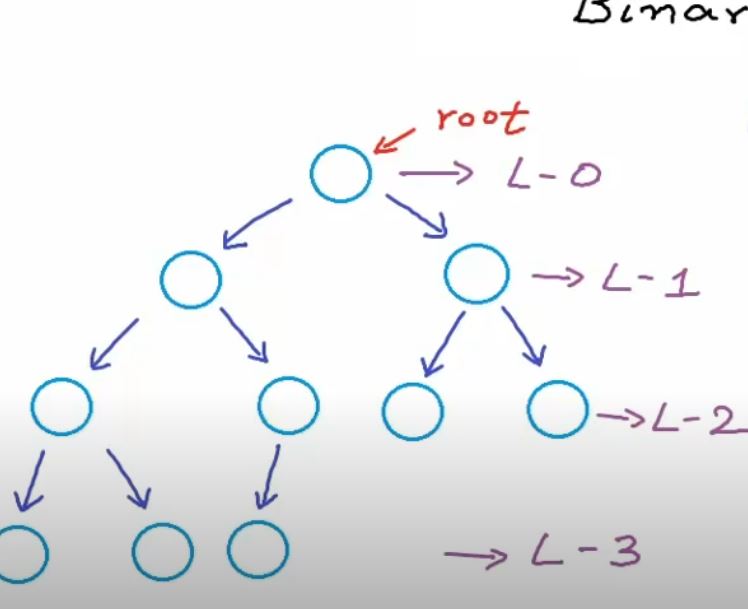 Binar
root
L-0
L-1
L-2
L-3